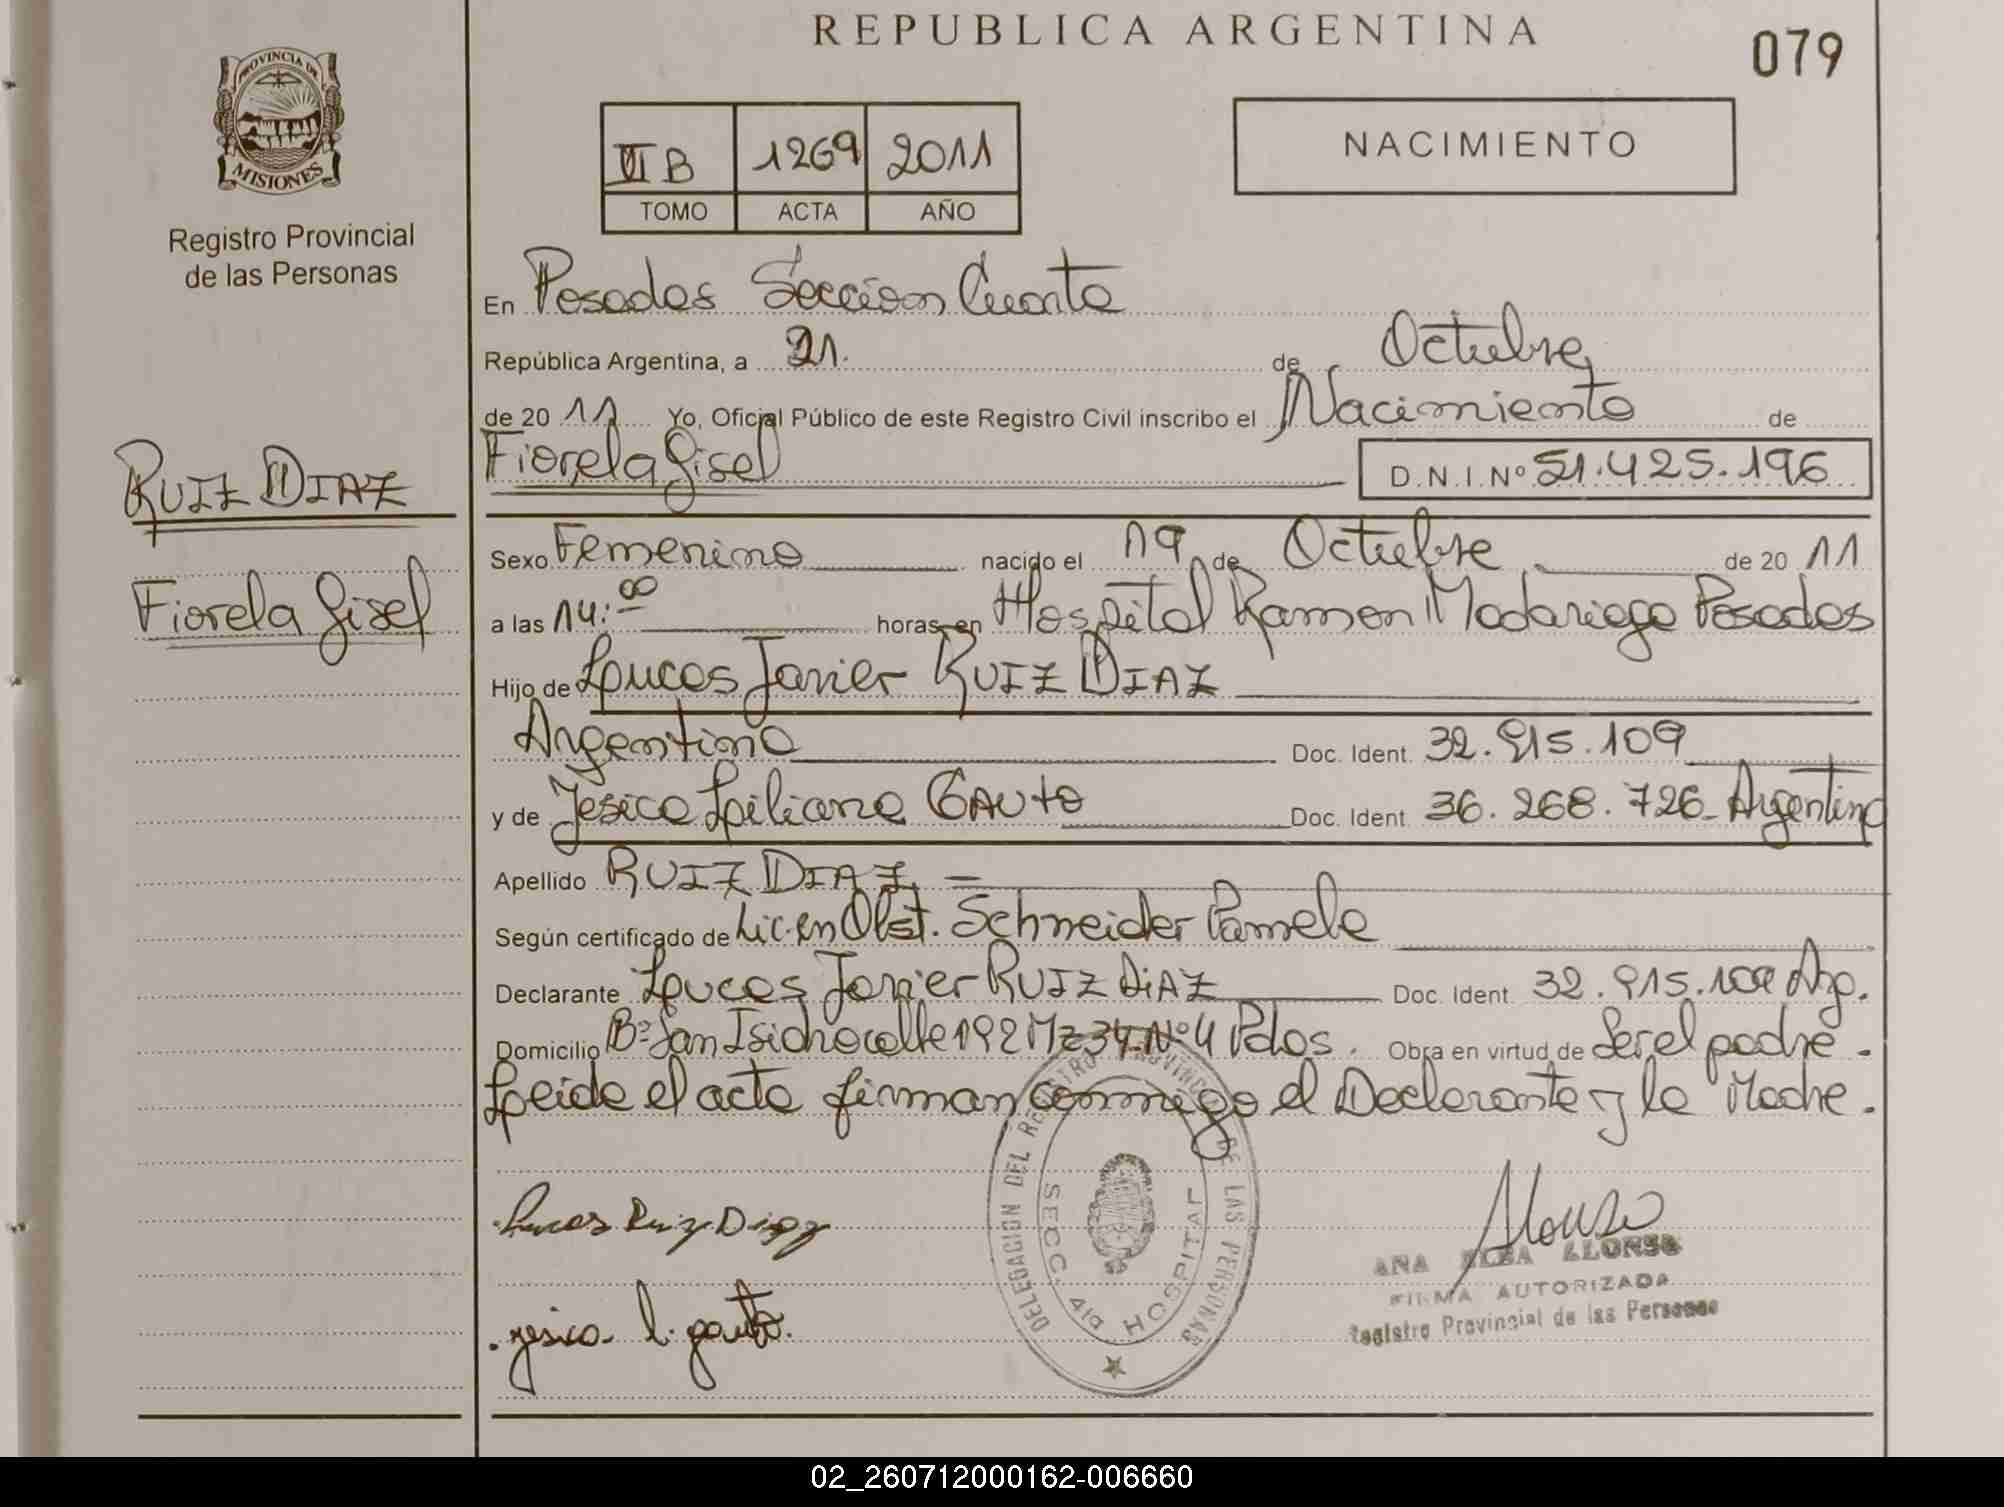 REPUBLICA ARGENTINA
079
PROVINCIA DE
MISIONES
Registro Provincial
de las Personas
B 1269 2011
TOMO ACTA AÑO
NACIMIENTO
En Posadas Seccion Cuarta
República Argentina, a 21. de Octubre
de 20 11 Yo, Oficial Público de este Registro Civil inscribo el Nacimiento de
Fiorela Gisel D.N.I.Nº 51.425.196
RUIZ DIAZ
Fiorela Gisel
Sexo Femenino nacido el 19 de Octubre de 20 11
a las 14:00 horas en Hospital Ramon Madariaga Posadas
Hijo de Lucas Javier RUIZ DIAZ
Argentino Doc. Ident. 32.915.109
y de Jesica Liliana GAUTO Doc. Ident. 36.268.726 Argentina
Apellido RUIZ DIAZ
Según certificado de Lic. en Obst. Schneider Pamela
Declarante Lucas Javier RUIZ DIAZ Doc. Ident. 32.915.109 Arg.
Domicilio Bº San Isidro calle 192 Mz 34 Nº 4 Pdas. Obra en virtud de Ser el padre.
Leida el acta firman conmigo el Declarante y la Madre.
DELEGACION DEL REGISTRO PROVINCIAL DE LAS PERSONAS
SECC. 4ta HOSPITAL
Lucas Ruiz Diaz
Alonso
ANA ELBA ALONSO
FIRMA AUTORIZADA
Registro Provincial de las Personas
yesica l. gauto.
02_260712000162-006660